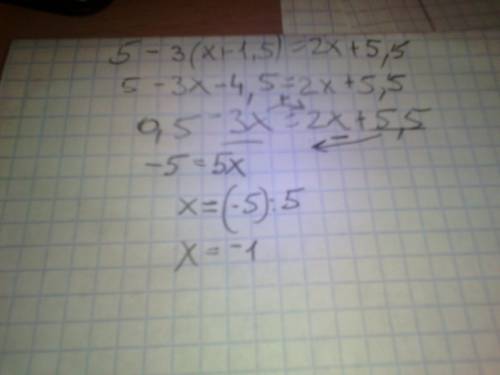 5 - 3(x+1,5) = 2x + 5,5
5 - 3x - 4,5 = 2x + 5,5
0,5 - 3x = 2x + 5,5
-5 = 5x
x = (-5) : 5
x = -1